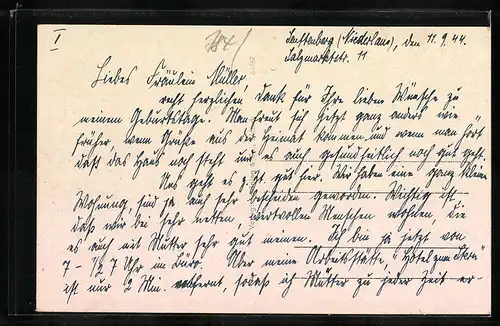 I
784/
Senftenberg (Niederlaus), den 11.9.44.
Salzmarktstr. 11
Liebes Fräulein Müller,
recht herzlichen Dank für Ihre lieben Wünsche zu
meinem Geburtstage. Man freut sich jetzt ganz anders wie
früher, wenn Grüße aus der Heimat kommen und wenn man hört
daß das Haus noch steht und es auch gesundheitlich noch gut geht.
Uns geht es z. Zt gut hier. Wir haben eine ganz kleine
Wohnung, sind ja auch sehr bescheiden geworden. Wichtig ist
daß wir bei sehr netten wertvollen Menschen wohnen, die
es auch mit Mutter sehr gut meinen. Ich bin ja jetzt von
7 - 1/2 7 Uhr im Büro. Aber meine Arbeitsstätte, Hotel zum
ist nur 2 Min. entfernt, sodaß ich Mutter zu jeder Zeit er-